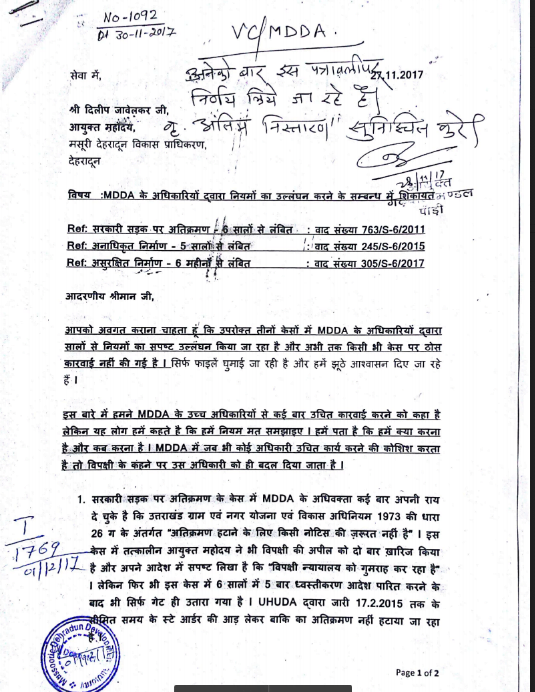 No-1092
Dt 30-11-2017
VC/MDDA.
अनेको बार इस पत्रावली पर
निर्णय लिये जा रहे हैं।
कृ. अंतिम निस्तारण सुनिश्चित करें।
28/11/17
सेवा में,
27.11.2017
श्री दिलीप जावेलकर जी,
आयुक्त महोदय,
मसूरी देहरादून विकास प्राधिकरण,
देहरादून
विषय :MDDA के अधिकारियों दूवारा नियमों का उल्लंघन करने के सम्बन्ध में शिकायत
पौड़ी
Ref: सरकारी सड़क पर अतिक्रमण - 6 सालों से लंबित : वाद संख्या 763/S-6/2011
Ref: अनाधिकृत निर्माण - 5 सालों से लंबित : वाद संख्या 245/S-6/2015
Ref: असुरक्षित निर्माण - 6 महीनों से लंबित : वाद संख्या 305/S-6/2017
आदरणीय श्रीमान जी,
आपको अवगत कराना चाहता हूं कि उपरोक्त तीनों केसों में MDDA के अधिकारियों दूवारा
सालों से नियमों का सपष्ट उल्लंघन किया जा रहा है और अभी तक किसी भी केस पर ठोस
कारवाई नहीं की गई है । सिर्फ फाइलें घुमाई जा रही है और हमें झूठे आश्वासन दिए जा रहे
हैं ।
इस बारे में हमने MDDA के उच्च अधिकारियों से कई बार उचित कारवाई करने को कहा है
लेकिन यह लोग हमें कहते है कि हमें नियम मत समझाइए । हमें पता है कि हमें क्या करना
है और कब करना है । MDDA में जब भी कोई अधिकारी उचित कार्य करने की कोशिश करता
है तो विपक्षी के कंहने पर उस अधिकारी को ही बदल दिया जाता है ।
1. सरकारी सड़क पर अतिक्रमण के केस में MDDA के अधिवक्ता कई बार अपनी राय
दे चुके है कि उत्तराखंड ग्राम एवं नगर योजना एवं विकास अधिनियम 1973 की धारा
26 ग के अंतर्गत "अतिक्रमण हटाने के लिए किसी नोटिस की ज़रुरत नहीं है" । इस
केस में तत्कालीन आयुक्त महोदय ने भी विपक्षी की अपील को दो बार ख़ारिज किया
है और अपने आदेश में सपष्ट लिखा है कि "विपक्षी न्यायालय को गुमराह कर रहा है"
। लेकिन फिर भी इस केस में 6 सालों में 5 बार ध्वस्तीकरण आदेश पारित करने के
बाद भी सिर्फ गेट ही उतारा गया है । UHUDA दूवारा जारी 17.2.2015 तक के
सीमित समय के स्टे आर्डर की आड़ लेकर बाकि का अतिक्रमण नहीं हटाया जा रहा
है ।
T
1769
01/12/17
Mussoorie Dehradun Development
Page 1 of 2